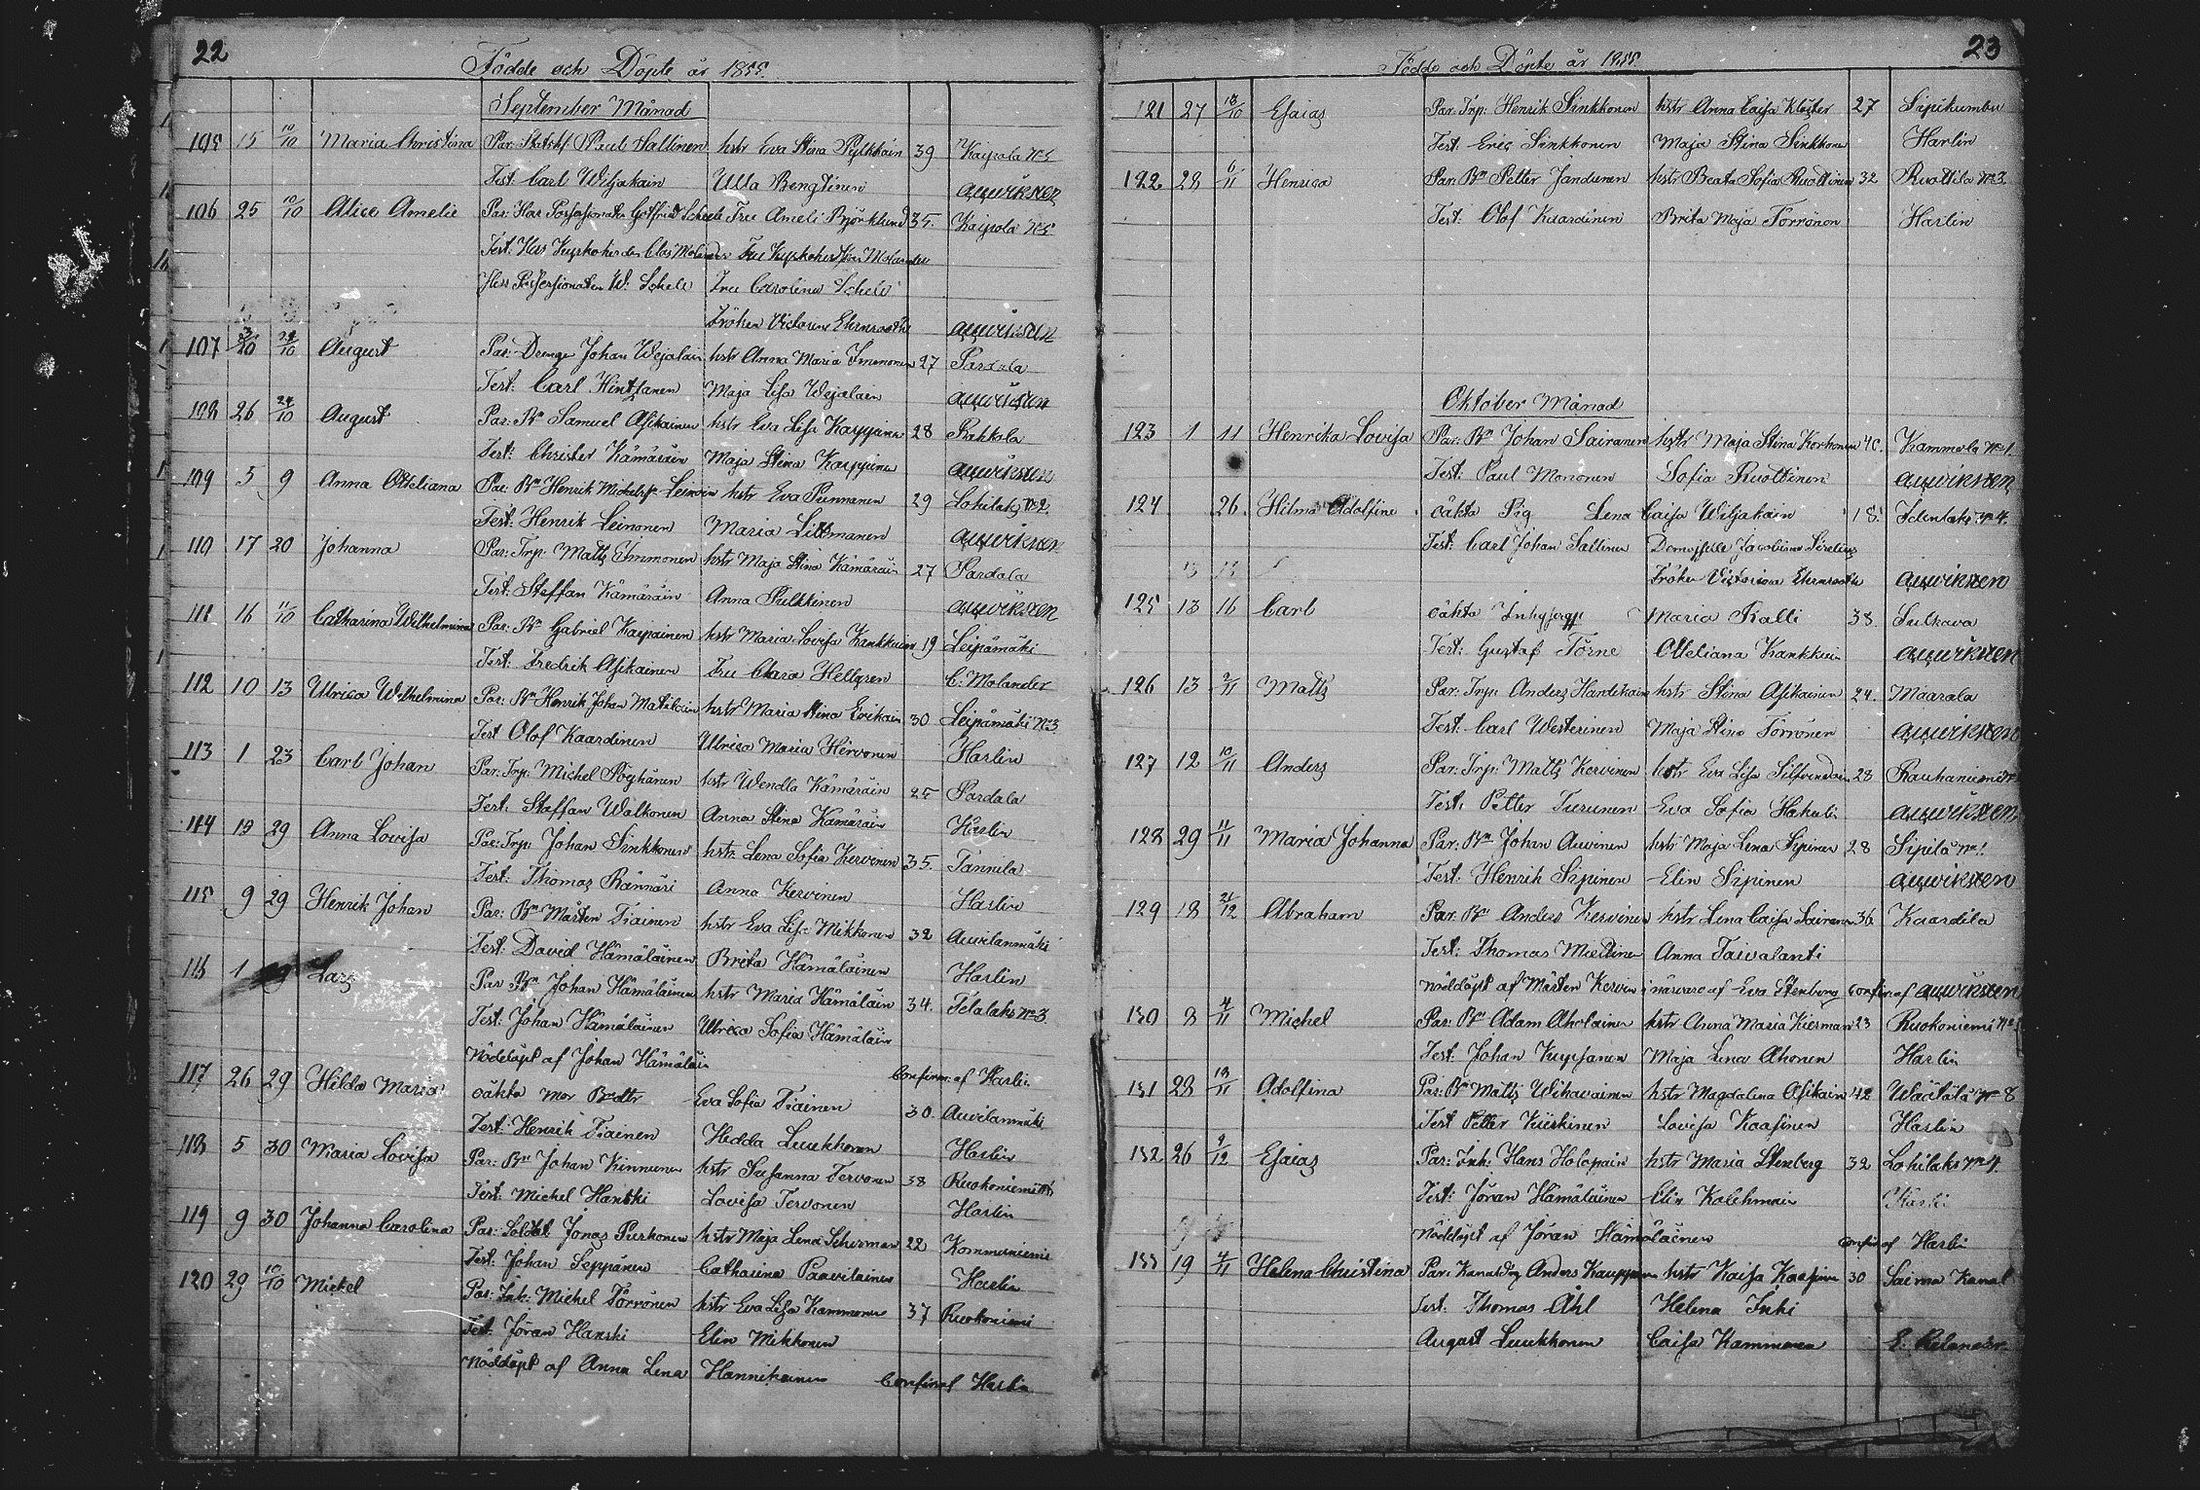 22
Födde och Döpte år 1855.
September Månad
105 15 10/10 Maria Christina Par: Paul Sallinen hstr Eva Stina Pylkkäin 39 Kaipola No 5
Test: Carl Wiljakain Ulla Bengtinen
106 25 10/10 Alice Amelie Par: Herr Possessionaten Gotfried Schele Fru Ameli Björklund 35. Kaipola No 5
Test: Herr Clas Molander Fru
Herr Possessionaten W. Schele Fru Carolina Schele
Fröken Victoria Ehrnrooth
107 3/10 24/10 August Par: Drenge Johan Wejalain hstr Anna Maria Immonen 27 Pardala
Test: Carl Hintsanen Maja Lisa Wejalain
108 26 24/10 August Par: Bn Samuel Asikainen hstr Eva Lisa Karppinen 28 Rahkola
Test: Christer Kämäräin Maja Stina Karppinen
109 5 9 Anna Otteliana Par: Bn Henrik Leinoin hstr Eva Punnanen 29 Lohilaks No 2
Test: Henrik Leinonen Maria Littmanen
110 17 20 Johanna Par: Trp: Matts Immonen hstr Maja Stina Kämäräin 27 Pardala
Test: Steffan Kämäräin Anna Pulkkinen
111 16 11/10 Catharina Wilhelmina Par: Bn Gabriel Kaipainen hstr Maria Lovisa Kankkunen 19 Leipämäki
Test: Fredrik Asikainen Fru Clara Hellgren C. Molander
112 10 13 Ulrica Wilhelmina Par: Bn Henrik Johan Matikain hstr Maria Stina Erikain 30 Leipämäki No 3
Test Olof Kaardinen Ulrica Maria Hirvonen Harlin
113 1 23 Carl Johan Par: Trp: Michel Pöyhänen hstr Wendla Kämäräin 25 Pardala
Test: Staffan Walkonen Anna Stina Kämäräin Harlin
114 19 29 Anna Lovisa Par: Trp: Johan Sinkkonen hstr Lena Sofia Kervinen 35. Tannila
Test: Thomas Rännäri Anna Kervinen Harlin
115 9 29 Henrik Johan Par: Bn Mårten Tiainen hstr Eva Lisa Mikkonen 32 Auvilanmäki
Test: David Hämäläinen Brita Hämäläinen Harlin
116 1 29 Lars Par Bn Johan Hämäläinen hstr Maria Hämäläin 34. Telalaks No 3
Test: Johan Hämäläinen Ulrica Sofia Hämäläin
Nöddöpt af Johan Hämäläin Confirm: af Harlin
117 26 29 Hilda Maria oäkta mor Bndtr Eva Sofia Tiainen 30. Auvilanmäki
Test: Henrik Tiainen Hedda Luukkonen Harlin
118 5 30 Maria Lovisa Par: Bn Johan Kinnunen hstr Susanna Tervonen 38 Ruokoniemi
Test: Michel Hanski Lovisa Tervonen Harlin
119 9 30 Johanna Carolina Par: Soldat Jonas Purhonen hstr Maja Lena Scherman 22 Kommerniemi
Test: Johan Seppänen Catharina Paavilainen Harlin
120 29 10/10 Mickel Par: Inh: Michel Törrönen hstr Eva Lisa Kammonen 37 Ruokoniemi
Test: Jöran Hanski Elin Mikkonen
Nöddöpt af Anna Lena Hannikainen Confir af Harlin
23
Födde och Döpte år 1855.
121 27 18/10 Esaias Par. Trp: Henrik Sinkkonen hstr Anna Caisa Klester 27 Sipikumbu
Test: Eric Sinkkonen Maja Stina Sinkkonen Harlin
122 28 6/11 Henrica Par: Bn Petter Jandunen hstr Beata Sofia Ruottinen 32 Ruottila No 3
Test: Olof Kaardinen Brita Maja Törrönen Harlin
Oktober Månad
123 1 11 Henrika Lovisa Par: Bn Johan Sairanen hstr Maja Stina Korhonen 40. Kammola No 1
Test: Paul Mononen Sofia Ruottinen
124 26. Hilma Adolfine oäkta Pig Lena Caisa Wiljakain 18. Idenlaks No 4.
Test: Carl Johan Sallinen Demoiselle Jacobina Sirelius
Fröken Victoria Ehrnrooth
125 13 16 Carl oäkta Maria Ralli 38. Sulkava
Test: Gustaf Törne Otteliana Kankkuin
126 13 2/11 Matts Par: Trp: Anders Hardikain hstr Stina Asikainen 24. Maarala
Test: Carl Westerinen Maja Stina Törrönen
127 12 10/11 Anders Par: Trp: Matts Kervinen hstr Eva Lisa Silfvendoin 28 Rauhaniemi
Test: Petter Turunen Eva Sofia Hakuli
128 29 11/11 Maria Johanna Par: Bn Johan Auvinen hstr Maja Lena Sipinen 28 Sipilä No 1
Test: Henrik Sipinen Elin Sipinen
129 18 21/12 Abraham Par. Bn Anders Kervinen hstr Lena Caisa Sairanen 36 Kaardila
Test: Thomas Miettinen Anna Taivalanti
Nöddöpt af Mårten Kervin i närvaro af Eva Stenberg Confir af
130 8 4/11 Michel Par: Bn Adam Aholainen hstr Anna Maria Kierman 23 Ruokoniemi
Test: Johan Kuppanen Maja Lena Ahonen Harlin
131 28 18/11 Adolfina Par: Bn Matts Wihavainen hstr Magdalena Asikain 42 Wäätälä No 8
Test Petter Kiiskinen Lovisa Kaasinen Harlin
132 26 9/12 Esaias Par: Inh: Hans Holopain hstr Maria Stenberg 32 Lohilaks No 4
Test: Jöran Hämäläinen Elin Kolehmain Harlin
Nöddöpt af Jöran Hämäläinen Confir af Harlin
133 19 4/11 Helena Christina Par: Anders Kauppinen hstr Kaisa Kaasinen 30 Saima Kanal
Test: Thomas Åhl Helena Inki
August Luukkonen Caisa Kammonen E. Relander